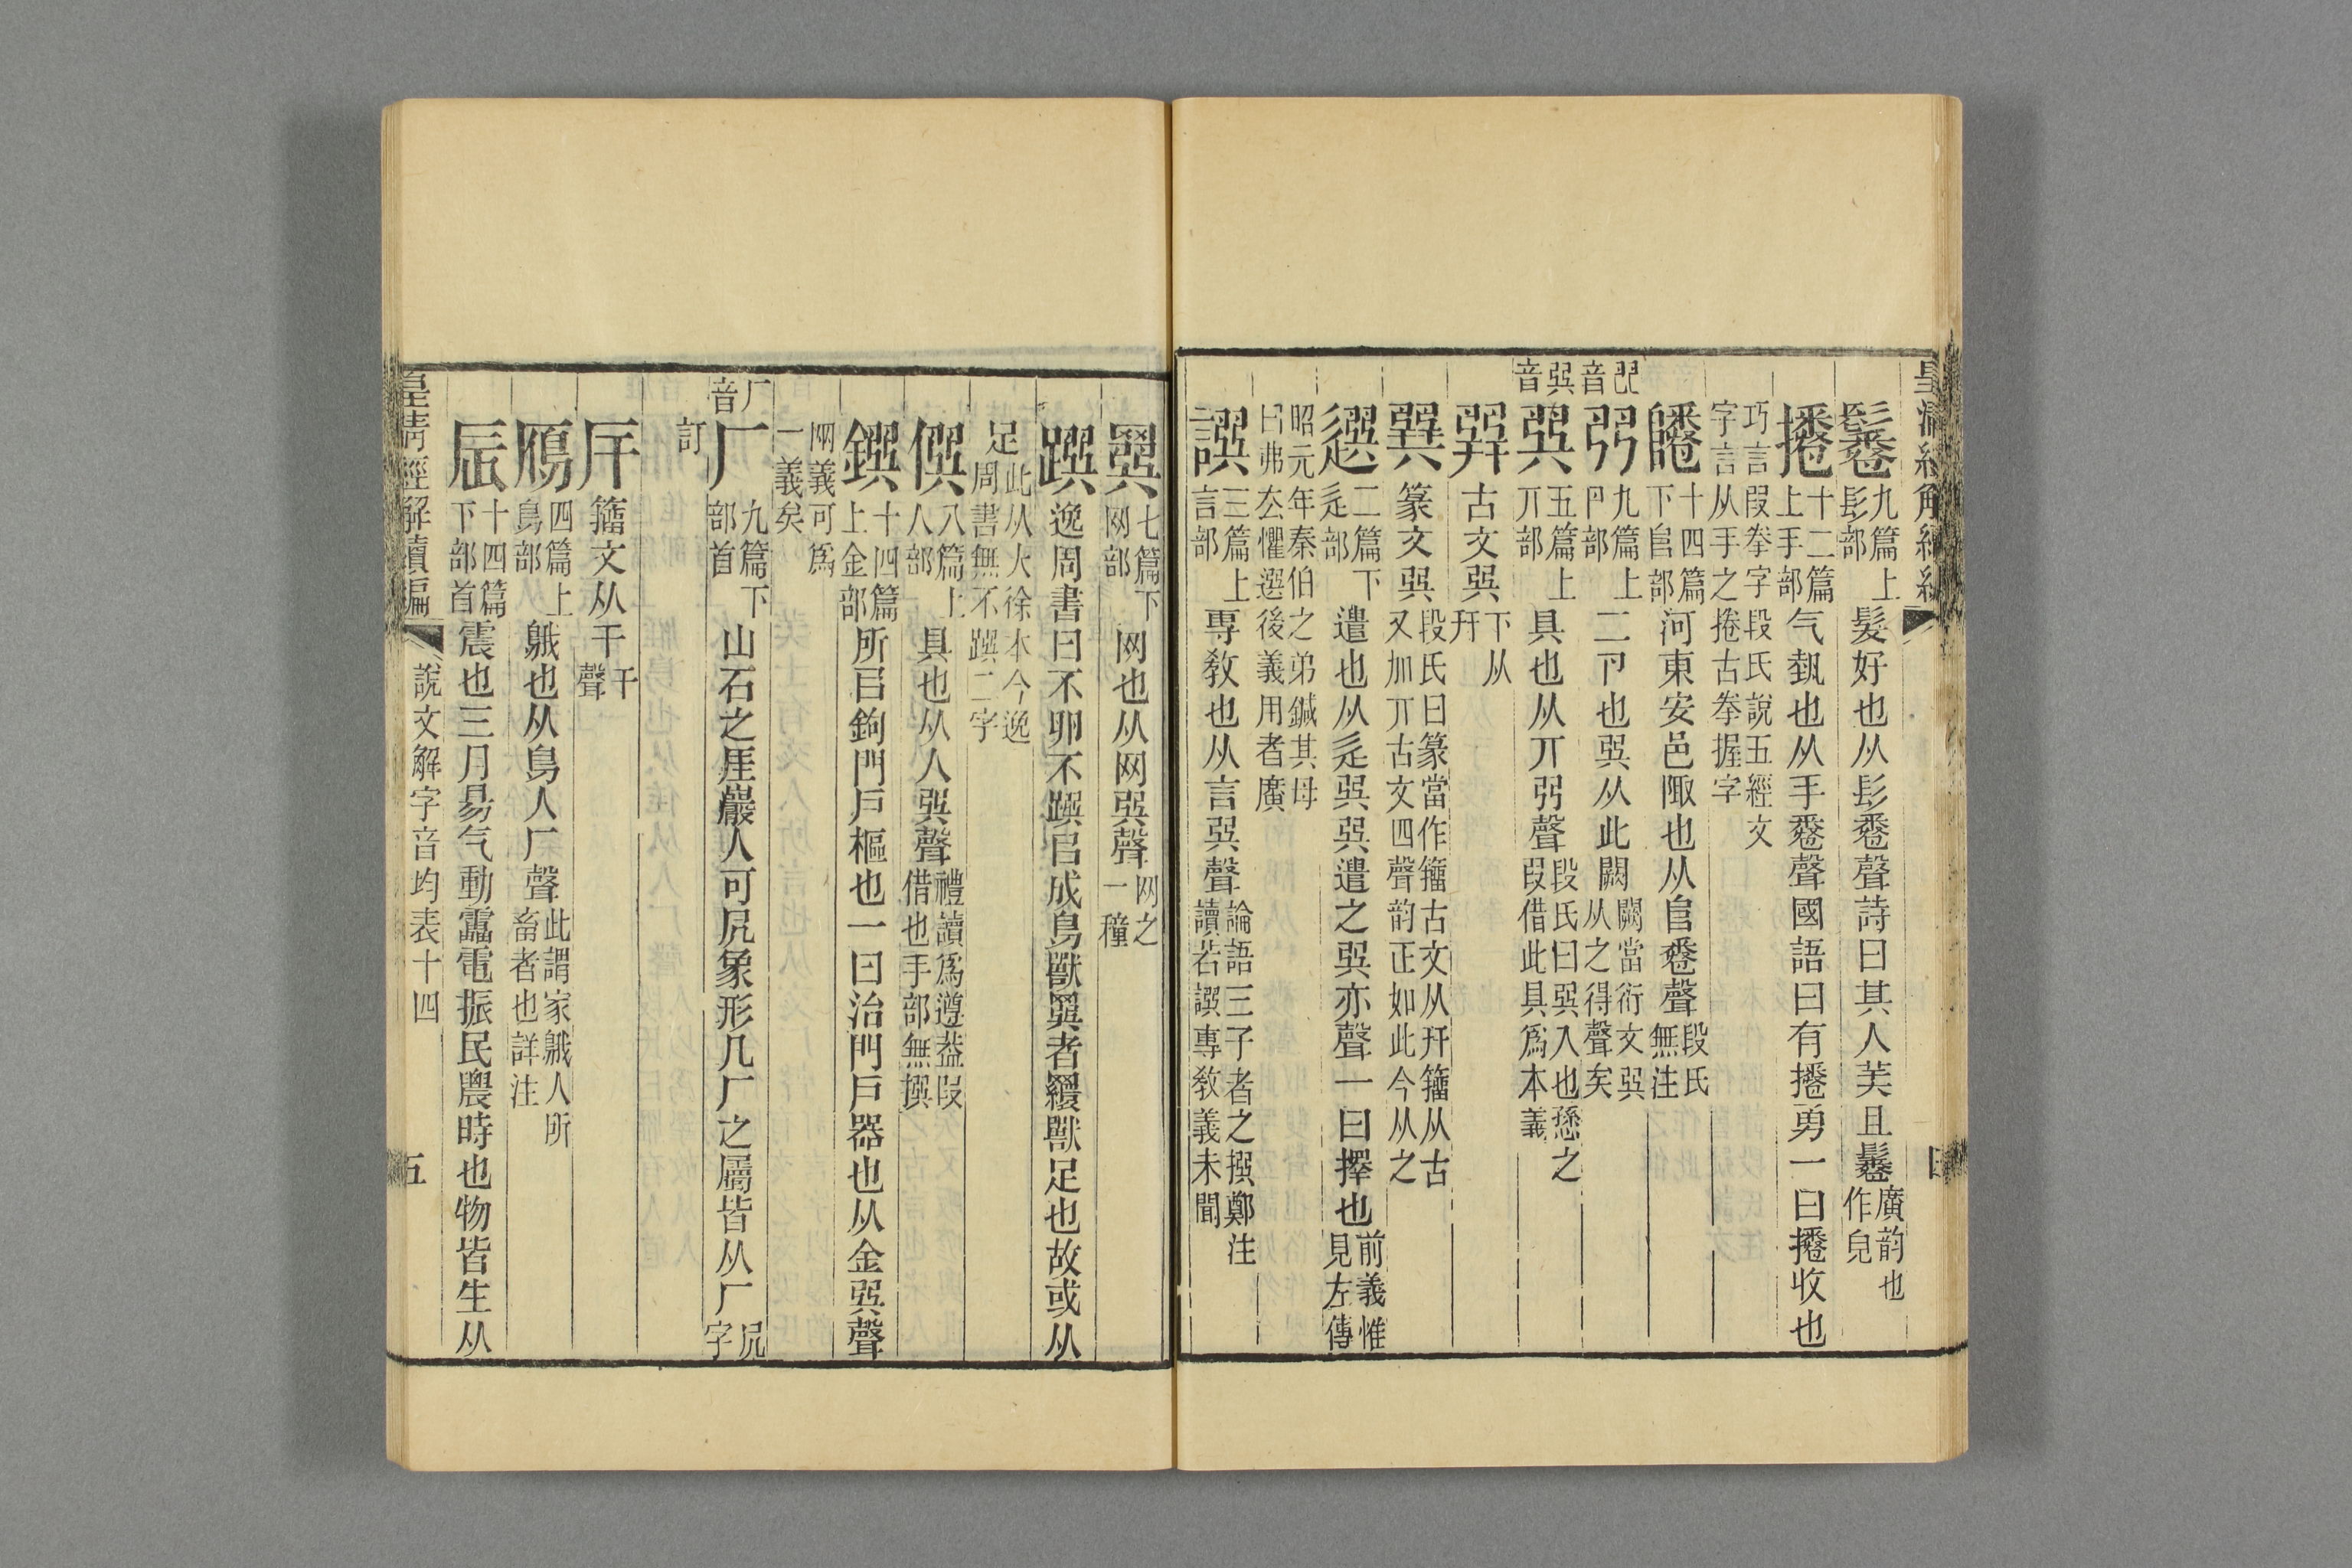 鬈 九篇上髟部 髮好也从髟𢍏聲詩曰其人美且鬈 廣韵也作皃
捲 十二篇上手部 气埶也从手𢍏聲國語曰有捲勇一曰捲收也
巧言叚拳字 段氏說五經文字言从手之捲古拳握字
十四篇下𨸏部 河東安邑陬也从𨸏𢍏聲 段氏無注
㔾㔾音 九篇上卪部 二卪也巽从此闕 闕當衍文巽从之得聲矣
巽音 巽 五篇上丌部 具也从丌聲 段氏曰巽入也愻之叚借此具爲本義
古文巽 下从幵
篆文巽 段氏曰篆當作籀古文从幵籀从古又加丌古文四聲韵正如此今从之
選 二篇下辵部 遣也从辵巽巽遣之巽亦聲一曰擇也 前義惟見左傳
昭元年秦伯之弟鍼其母曰弗去懼選後義用者廣
譔 三篇上言部 專敎也从言巽聲 論語三子者之撰鄭注讀若譔專敎義未聞
七篇下网部 网也从网巽聲 网之一種
逸周書曰不卵不𨅔㠯成鳥獸者䍜獸足也故或从
足 此从大徐本今逸周書無不𨅔二字
僎 八篇上人部 具也从人巽聲 禮讀爲遵葢叚借也手部無撰
鐉 十四篇上金部 所㠯鉤門戶樞也一曰治門戶器也从金巽聲
兩義可爲一義矣
厂音 厂 九篇下部首 山石之厓巖人可凥象形凡厂之屬皆从厂 凥字
訂
厈 籀文从干 干聲
鴈 四篇上鳥部 䳘也从鳥人厂聲 此謂家䳘人所畜者也詳注
辰 十四篇下部首 震也三月昜气動靁電振民農時也物皆生从
皇清經解續編 說文解字音均表十四 五